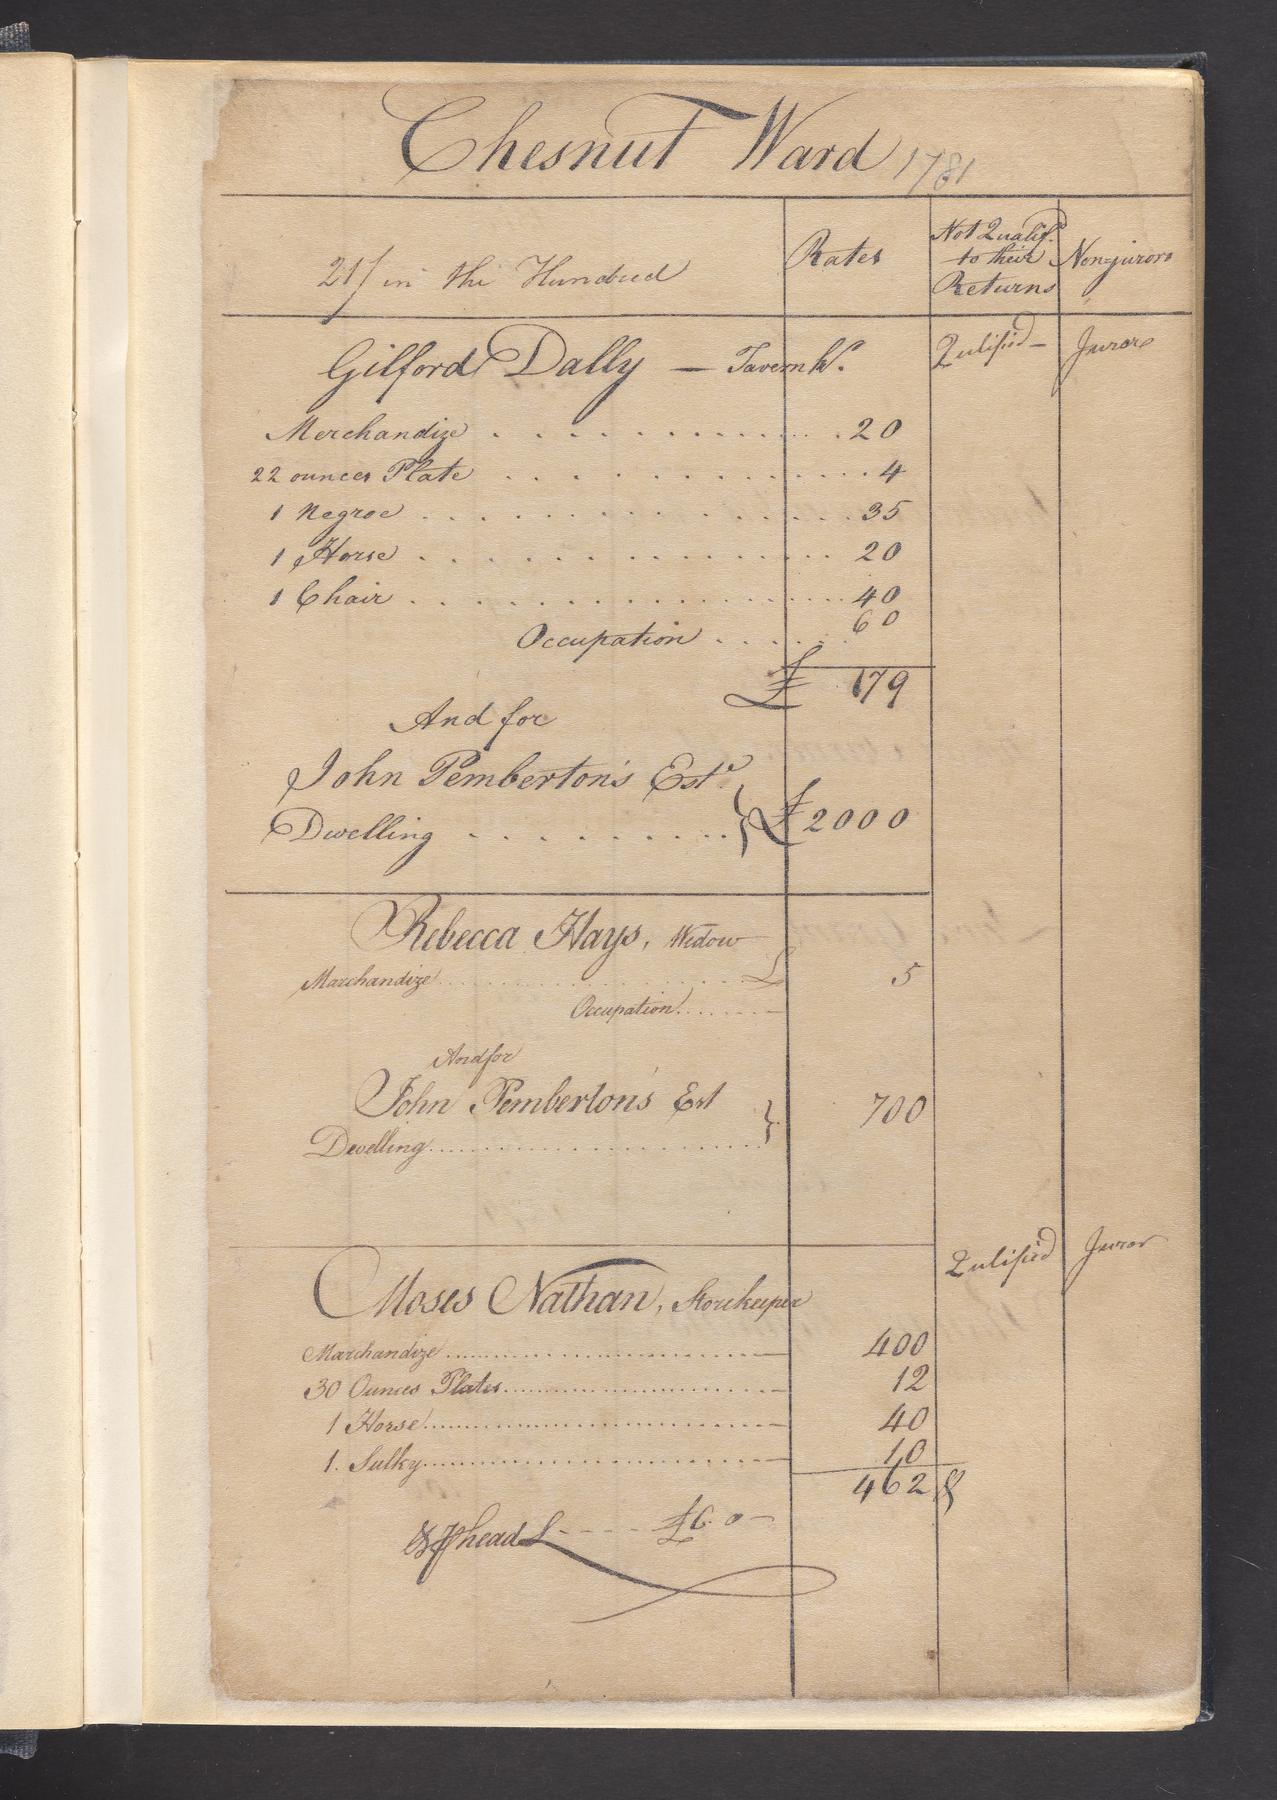 Chesnut Ward 1781
21/ in the Hundred
Rates
Not Qualifd. to their Returns
Non-jurors
Gilford Dally — Tavernkr.
Qulified — Juror
Merchandize . . . . . . . . . . . . . . 20
22 ounces Plate . . . . . . . . . . . . . . 4
1 Negroe . . . . . . . . . . . . . . 35
1 Horse . . . . . . . . . . . . . . 20
1 Chair . . . . . . . . . . . . . . 40
Occupation . . . . . . 60
£ 179
And for
John Pemberton's Este.
Dwelling . . . . . . . . . } £ 2000
Rebecca Hays, Widow
Marchandize . . . . . . . . . . . . £ 5
Occupation . . . . . . —
And for
John Pemberton's Est
Dwelling . . . . . . . . . . . . } 700
Moses Nathan, Storekeeper
Qulified Juror
Marchandize . . . . . . . . . . . . — 400
30 Ounces Plates . . . . . . . . . . . . — 12
1 Horse . . . . . . . . . . . . — 40
1. Sulky . . . . . . . . . . . . — 10
462
head - - - - £6. 0 —